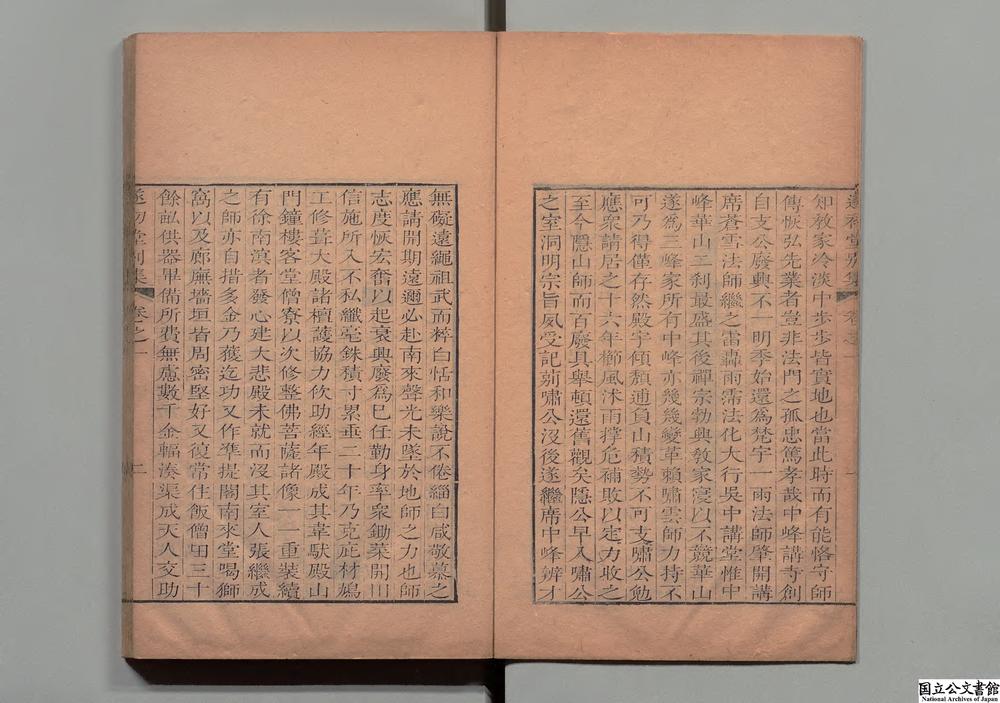 遂初堂別集 卷之一 一
如教家冷淡中步步皆實地也當此時而有能恪守師
傳恢弘先業者豈非法門之孤忠篤孝哉中峰講寺創
自支公廢興不一明季始還爲梵宇一雨法師肇開講
席蒼雪法師繼之雷轟雨霈法化大行吳中講堂惟中
峰華山二刹最盛其後禪宗勃興教家寖以不競華山
遂爲三峰家所有中峰亦幾幾變革賴嘯雲師力持不
可乃得僅存然殿宇傾頹逋負山積勢不可支嘯公勉
應衆請居之十六年櫛風沐雨撑危補敗以定力收之
至今隱山師而百廢具舉頓還舊觀矣隱公早入嘯公
之室洞明宗旨夙受記莂嘯公沒後遂繼席中峰辨才
無礙遠繩祖武而粹白恬和樂說不倦緇白咸敬慕之
應請開期遠邇必赴南來聲光未墜於地師之力也師
志度恢宏奮以起衰興廢爲巳任勤身率衆鋤菜開川
信施所入不私纖毫銖積寸累垂二十年乃克庀材鳩
工修葺大殿諸檀護協力佽助經年殿成其韋馱殿山
門鐘樓客堂僧寮以次修整佛菩薩諸像一一重裝續
有徐南溟者發心建大悲殿未就而沒其室人張繼成
之師亦自捐多金乃獲迄功又作準提閣南來堂喝獅
窩以及廊廡墻垣皆周密堅好又復常住飯僧田三十
餘畝供器畢備所費無慮數千金輻湊渠成天人交助
遂初堂別集 卷之一 二
国立公文書館
National Archives of Japan